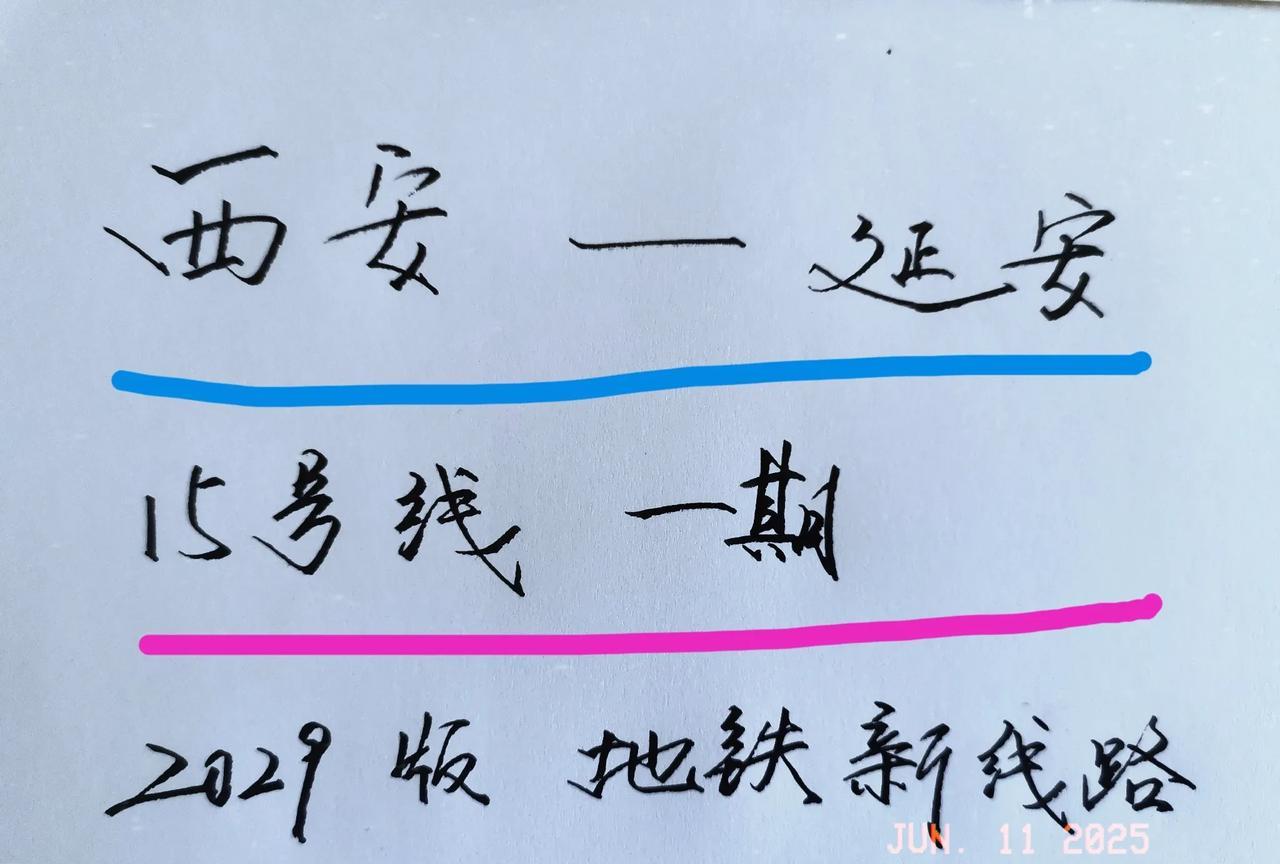 西安 — 延安
15号线 一期
2029版 地铁新线路
JUN. 11 2025